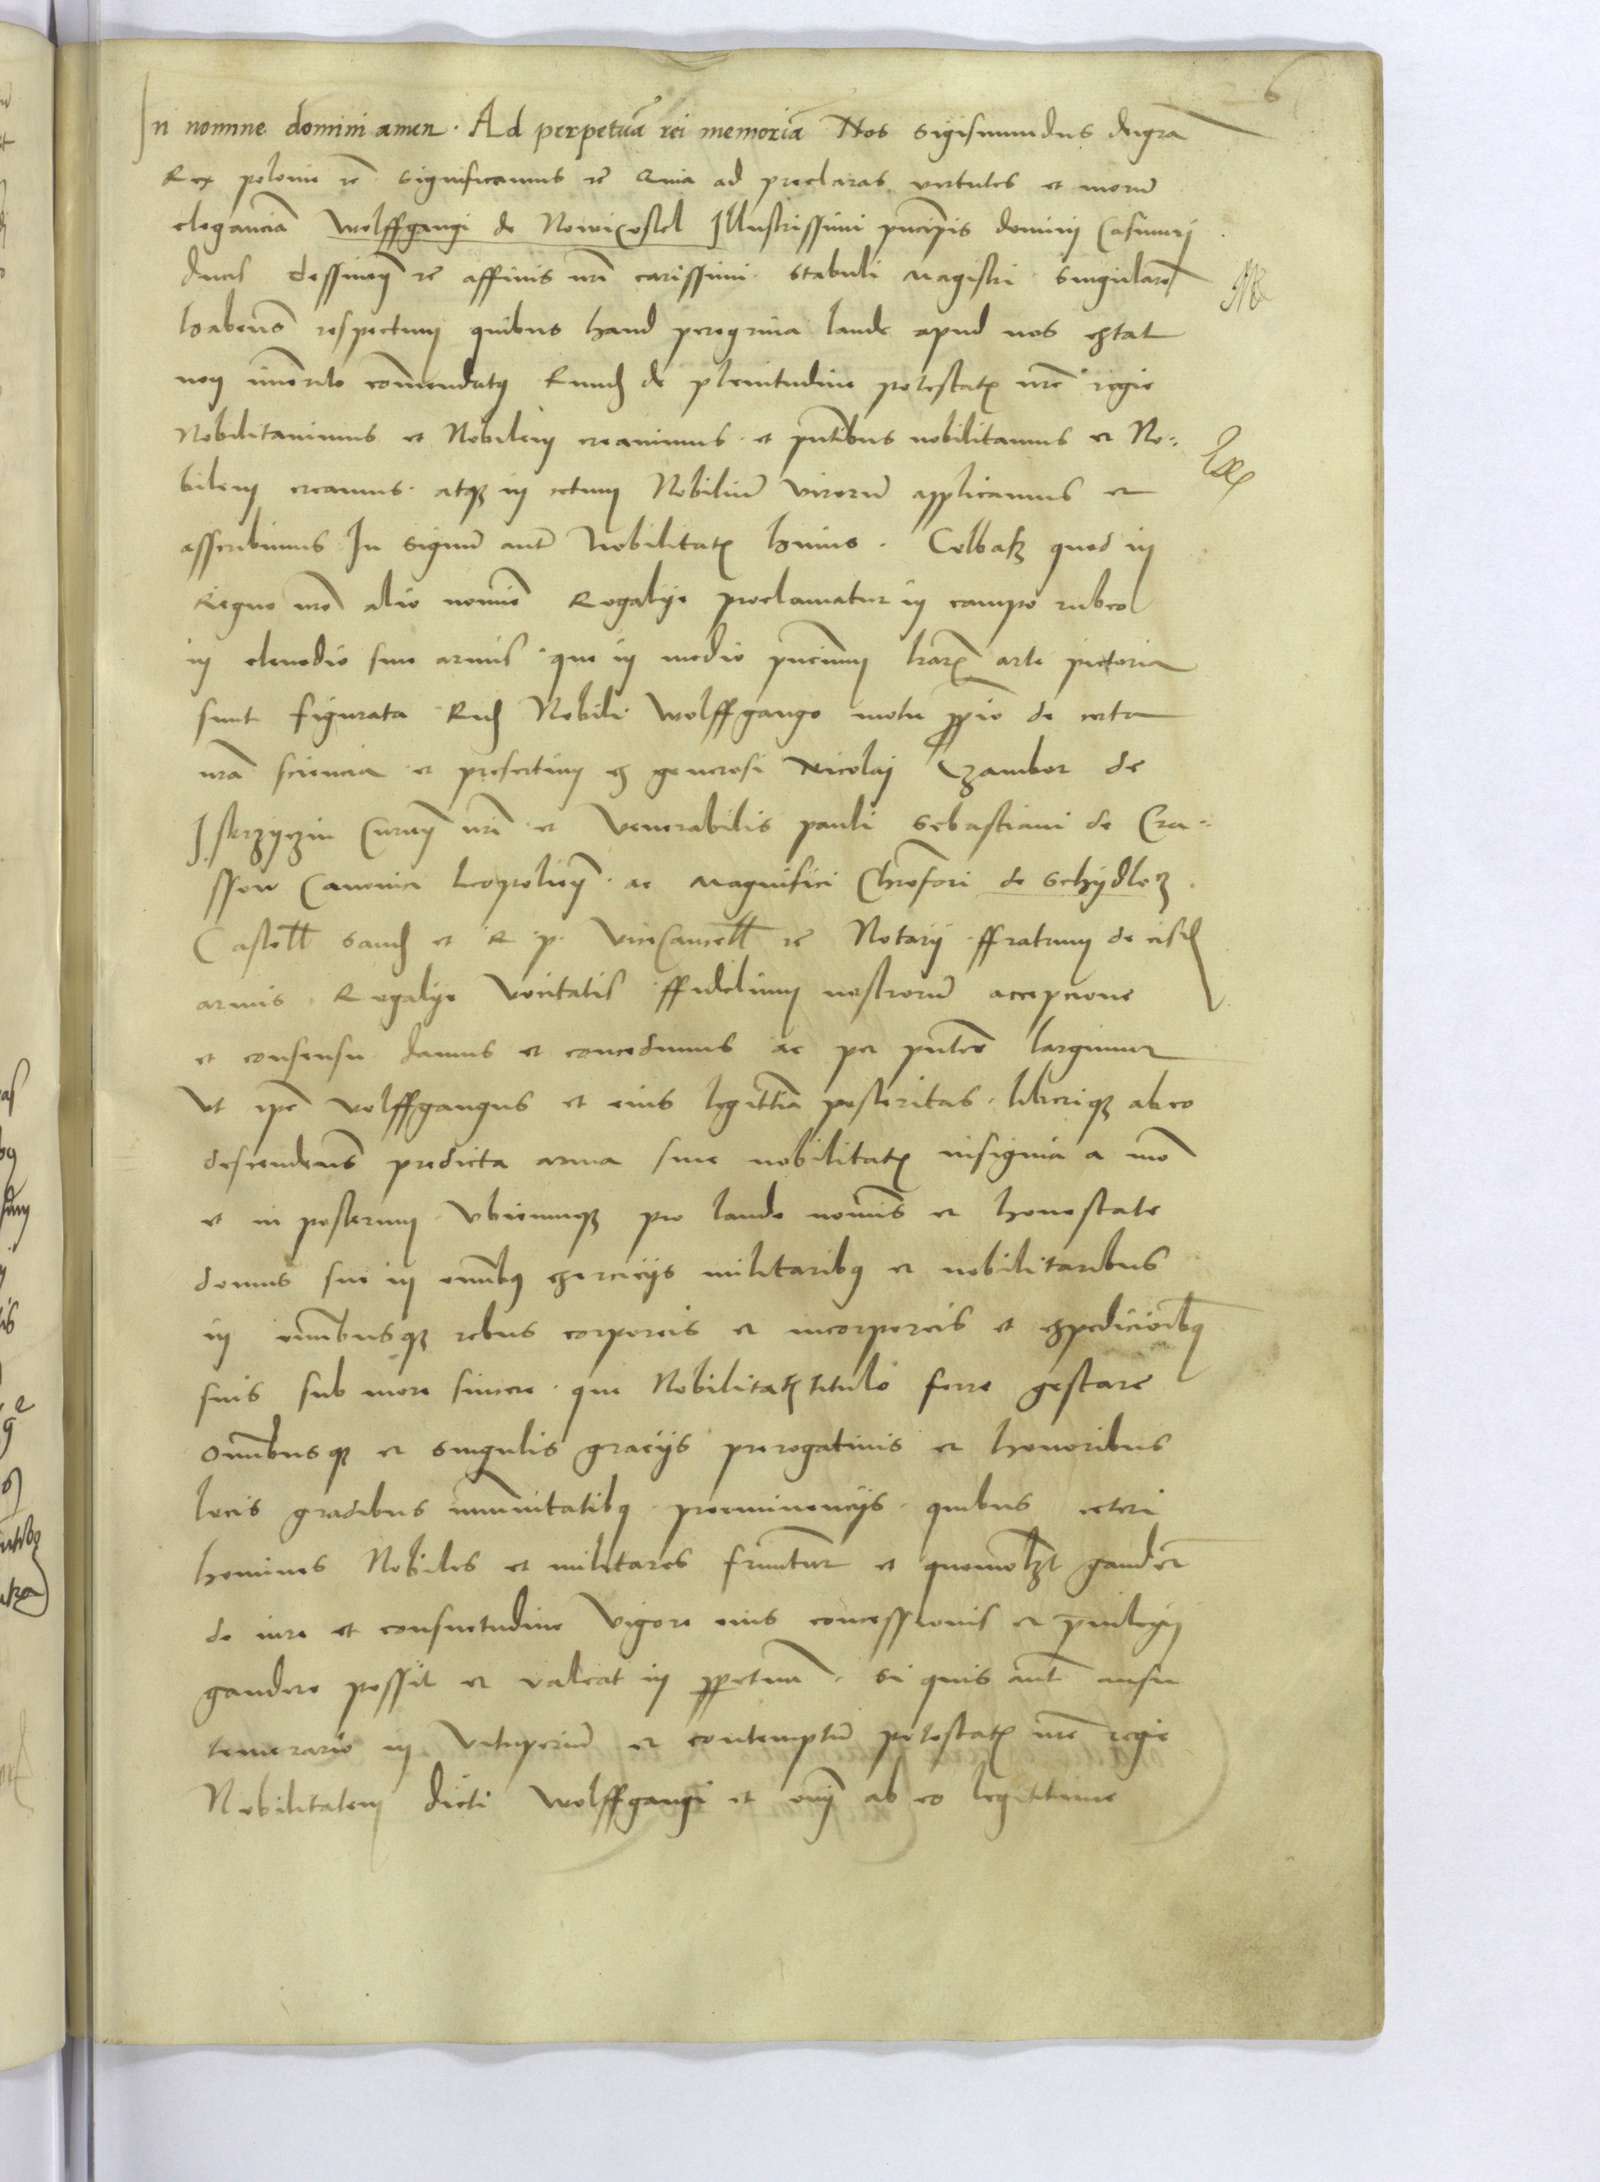 6
In nomine domini amen. Ad perpetuā rei memoriā Nos Sigismundus deigrā
Rex polonie rē Significamus rē Quia ad preclaras virtutes et morū
eleganciā Wolffgangi de Nowicostel Illustrissimi pncipis domini Casimiri
ducis Tessineñ rē affinis nri carissimi Stabuli magistri Singularē
habens respectum quibus haud peregrina laude apud nos extat
non imerito comendatus Eund de plenitudine potestatis nre regie
Nobilitavimus et Nobilem creavimus et pntibus nobilitamus et No-
bilem creamus atqz in cetum Nobiliū virorū applicamus et
asscribimus In Signū aut Nobilitatis huius Colbasz quod in
Regno nro alio nomie Rogalye proclamatur in campo rubeo
in clenodio sive armis que in medio pncium lrarum arte pictoria
sunt figurata Eid Nobili Wolffgango motu pprio de certa
nra sciencia et presertim ex generosi Nicolai Czambor de
Iskrzyczin Curien nri et Venerabilis pauli Sebastiani de Cra-
ssow Canonici leopolien ac Magnifici Chrofori de Schydlowiecz
Castell Sand et R p viceCancell rē Notarij ffratrum de eisd
armis Rogalye vocitatis ffidelium nostrorū accepcione
et consensu damus et concedimus ac per pntes largimur
Ut ipe Wolffgangus et eius legittia posteritas liberiqz ab eo
descendens predicta arma sive nobilitatis insignia a mō
et in posterum Ubicumqz pro laude nomis et honestate
domus sue in omibus exercicijs militaribus et nobilitaribus
in omibusqz rebus corporeis et incorporeis et expedicioibus
suis sub more sincere que Nobilitatis titulo ferre gestare
omibusqz et singulis gracijs prerogativis et honoribus
locis gradibus immunitatibus preeminencijs quibus ceteri
homines Nobiles et militares fruuntur et quomolzt gaudent
de iure et consuetudine Vigore eius concessionis et privilegij
gaudere possit et valeat in ppetuum Si quis aut ausu
temerario in Vituperiū et contemptū potestatis nre regie
Nobilitatem dicti Wolffgangi et omi ab eo legittime